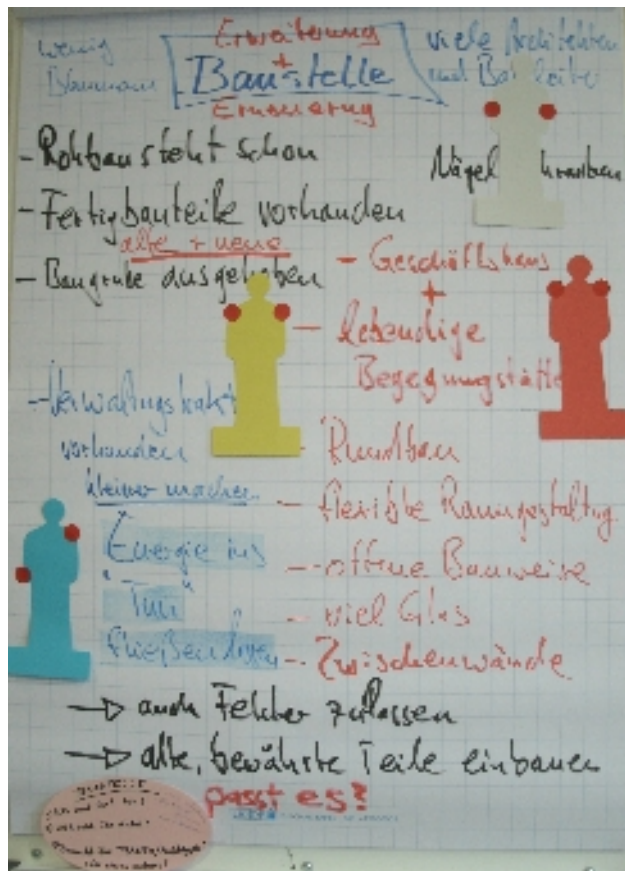 wenig
Blaumann
Erweiterung
+
Baustelle
Erneuerung
viele Architekten
und Bauleiter
- Rohbau steht schon
Nägel
- Fertigbauteile vorhanden
alte + neue
- Baugrube ausgehoben
- Geschäftshaus
+
- lebendige
Begegnungsstätte
- Verwaltungstrakt
vorhanden
kleiner machen
- Rundbau
- flexible Raumgestaltung
Energie ins
"Tun"
fließen lassen
- offene Bauweise
- viel Glas
- Zwischenwände
→ auch Fehler zulassen
→ alte, bewährte Teile einbauen
passt es?